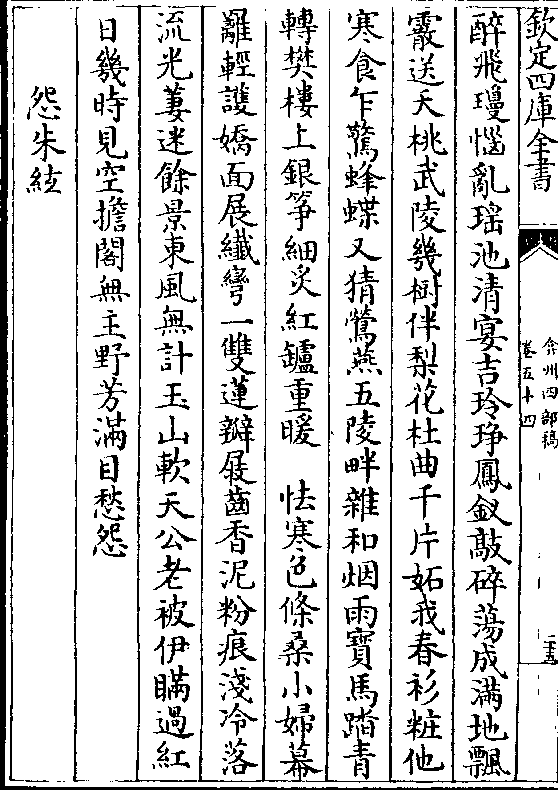 欽定四庫全書
弇州四部稿
卷五十四
醉飛瓊惱亂瑶池清宴吉玲琤鳳釵敲碎蕩成滿地飄
霰送夭桃武陵幾樹伴梨花杜曲千片妬我春衫粧他
寒食乍驚蜂蝶又猜鶯燕五陵畔雜和烟雨寶馬踏青
轉樊樓上銀箏細炙紅鑪重暖　怯寒色條桑小婦幕
離輕護嬌面展纖彎一雙蓮瓣屐齒香泥粉痕淺冷落
流光萋迷餘景東風無計玉山軟天公老被伊瞞過紅
日幾時見空擔閣無主野芳滿目愁怨
怨朱絃